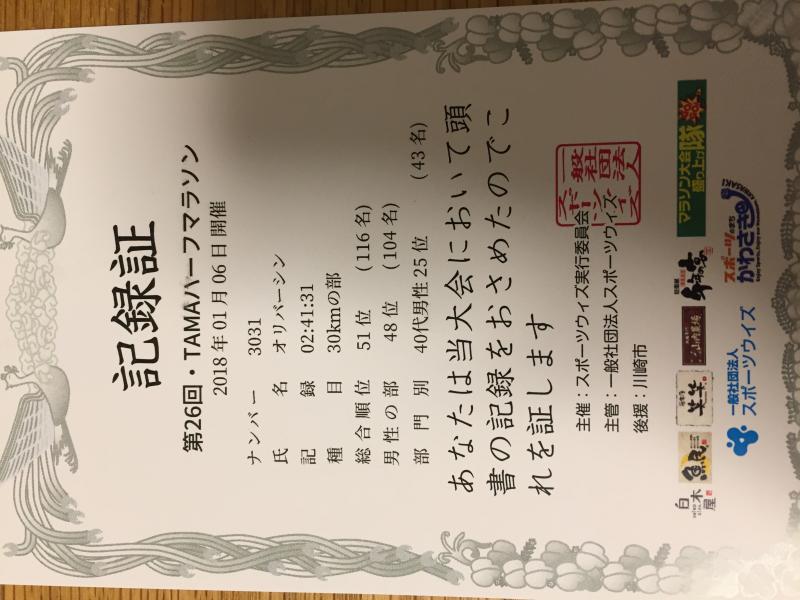 記録証
第26回・TAMAハーフマラソン
2018年01月06日開催
ナンバー 3031
氏名 オリバーシン
記録 02:41:31
種目 30kmの部
総合順位 51位 (116名)
男性の部 48位 (104名)
部門別 40代男性25位 (43名)
あなたは当大会において頭
書の記録をおさめたのでこ
れを証します
主催:スポーツウィズ実行委員会
主管:一般社団法人スポーツウィズ
後援:川崎市
一般社団法人
スポーツウィズ
白木屋
魚民
笑笑
山内農場
マラソン大会
盛り上げ隊
一般社団法人
スポーツウィズ
スポーツのまち
かわさき